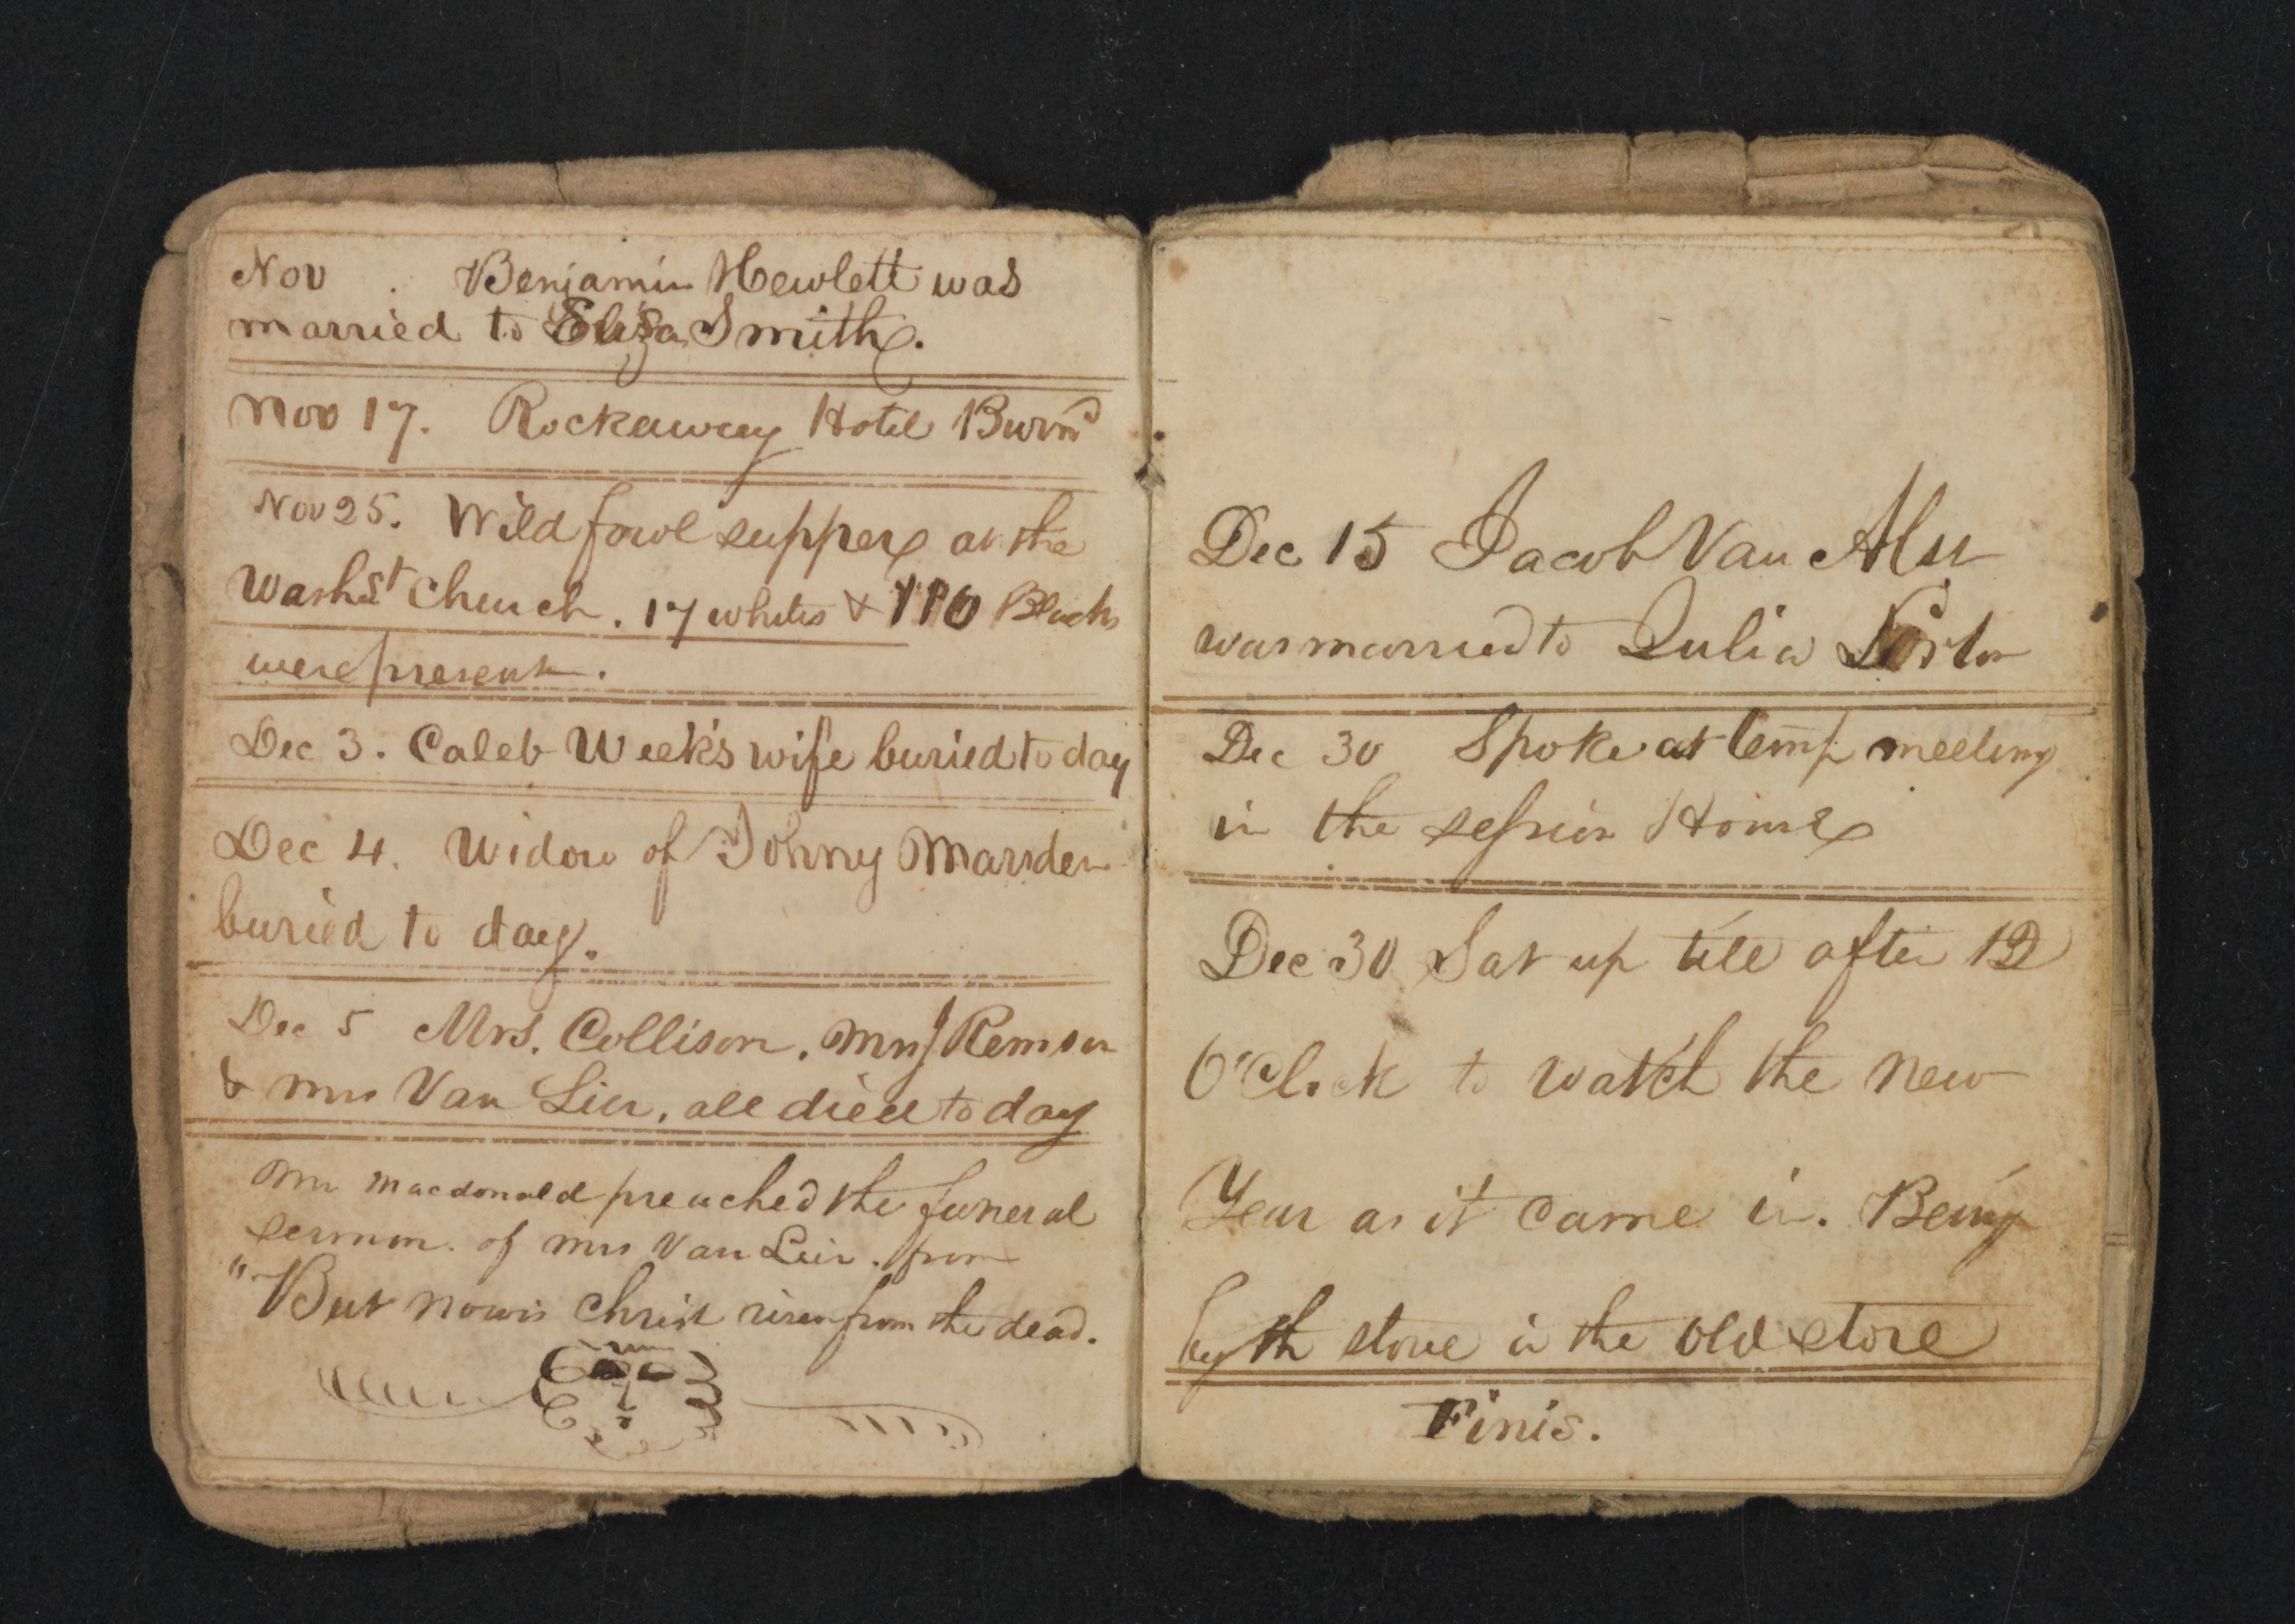 Nov . Benjamin Hewlett was
married to Eliza Smith.
Nov 17. Rockaway Hotel Burnd
Nov 25. Wild fowl supper at the
Wash St Church. 17 whites & 110 Blacks
were present.
Dec 3. Caleb Week's wife buried to day
Dec 4. Widow of Johny Marsden
buried to day.
Dec 5 Mrs. Collison. Mrs J Remsen
& Mrs Van Lier. all died to day
Mr Macdonald preached the funeral
sermon. of Mrs Van Leir. from
"But now is Christ risen from the dead.
Dec 15 Jacob Van
was married to Julia
Dec 30 Spoke at Temp meeting
in the session House
Dec 30 Sat up till after 12
O'Clock to watch the New
Year as it came in. Being
by th stove in the old store
Finis.